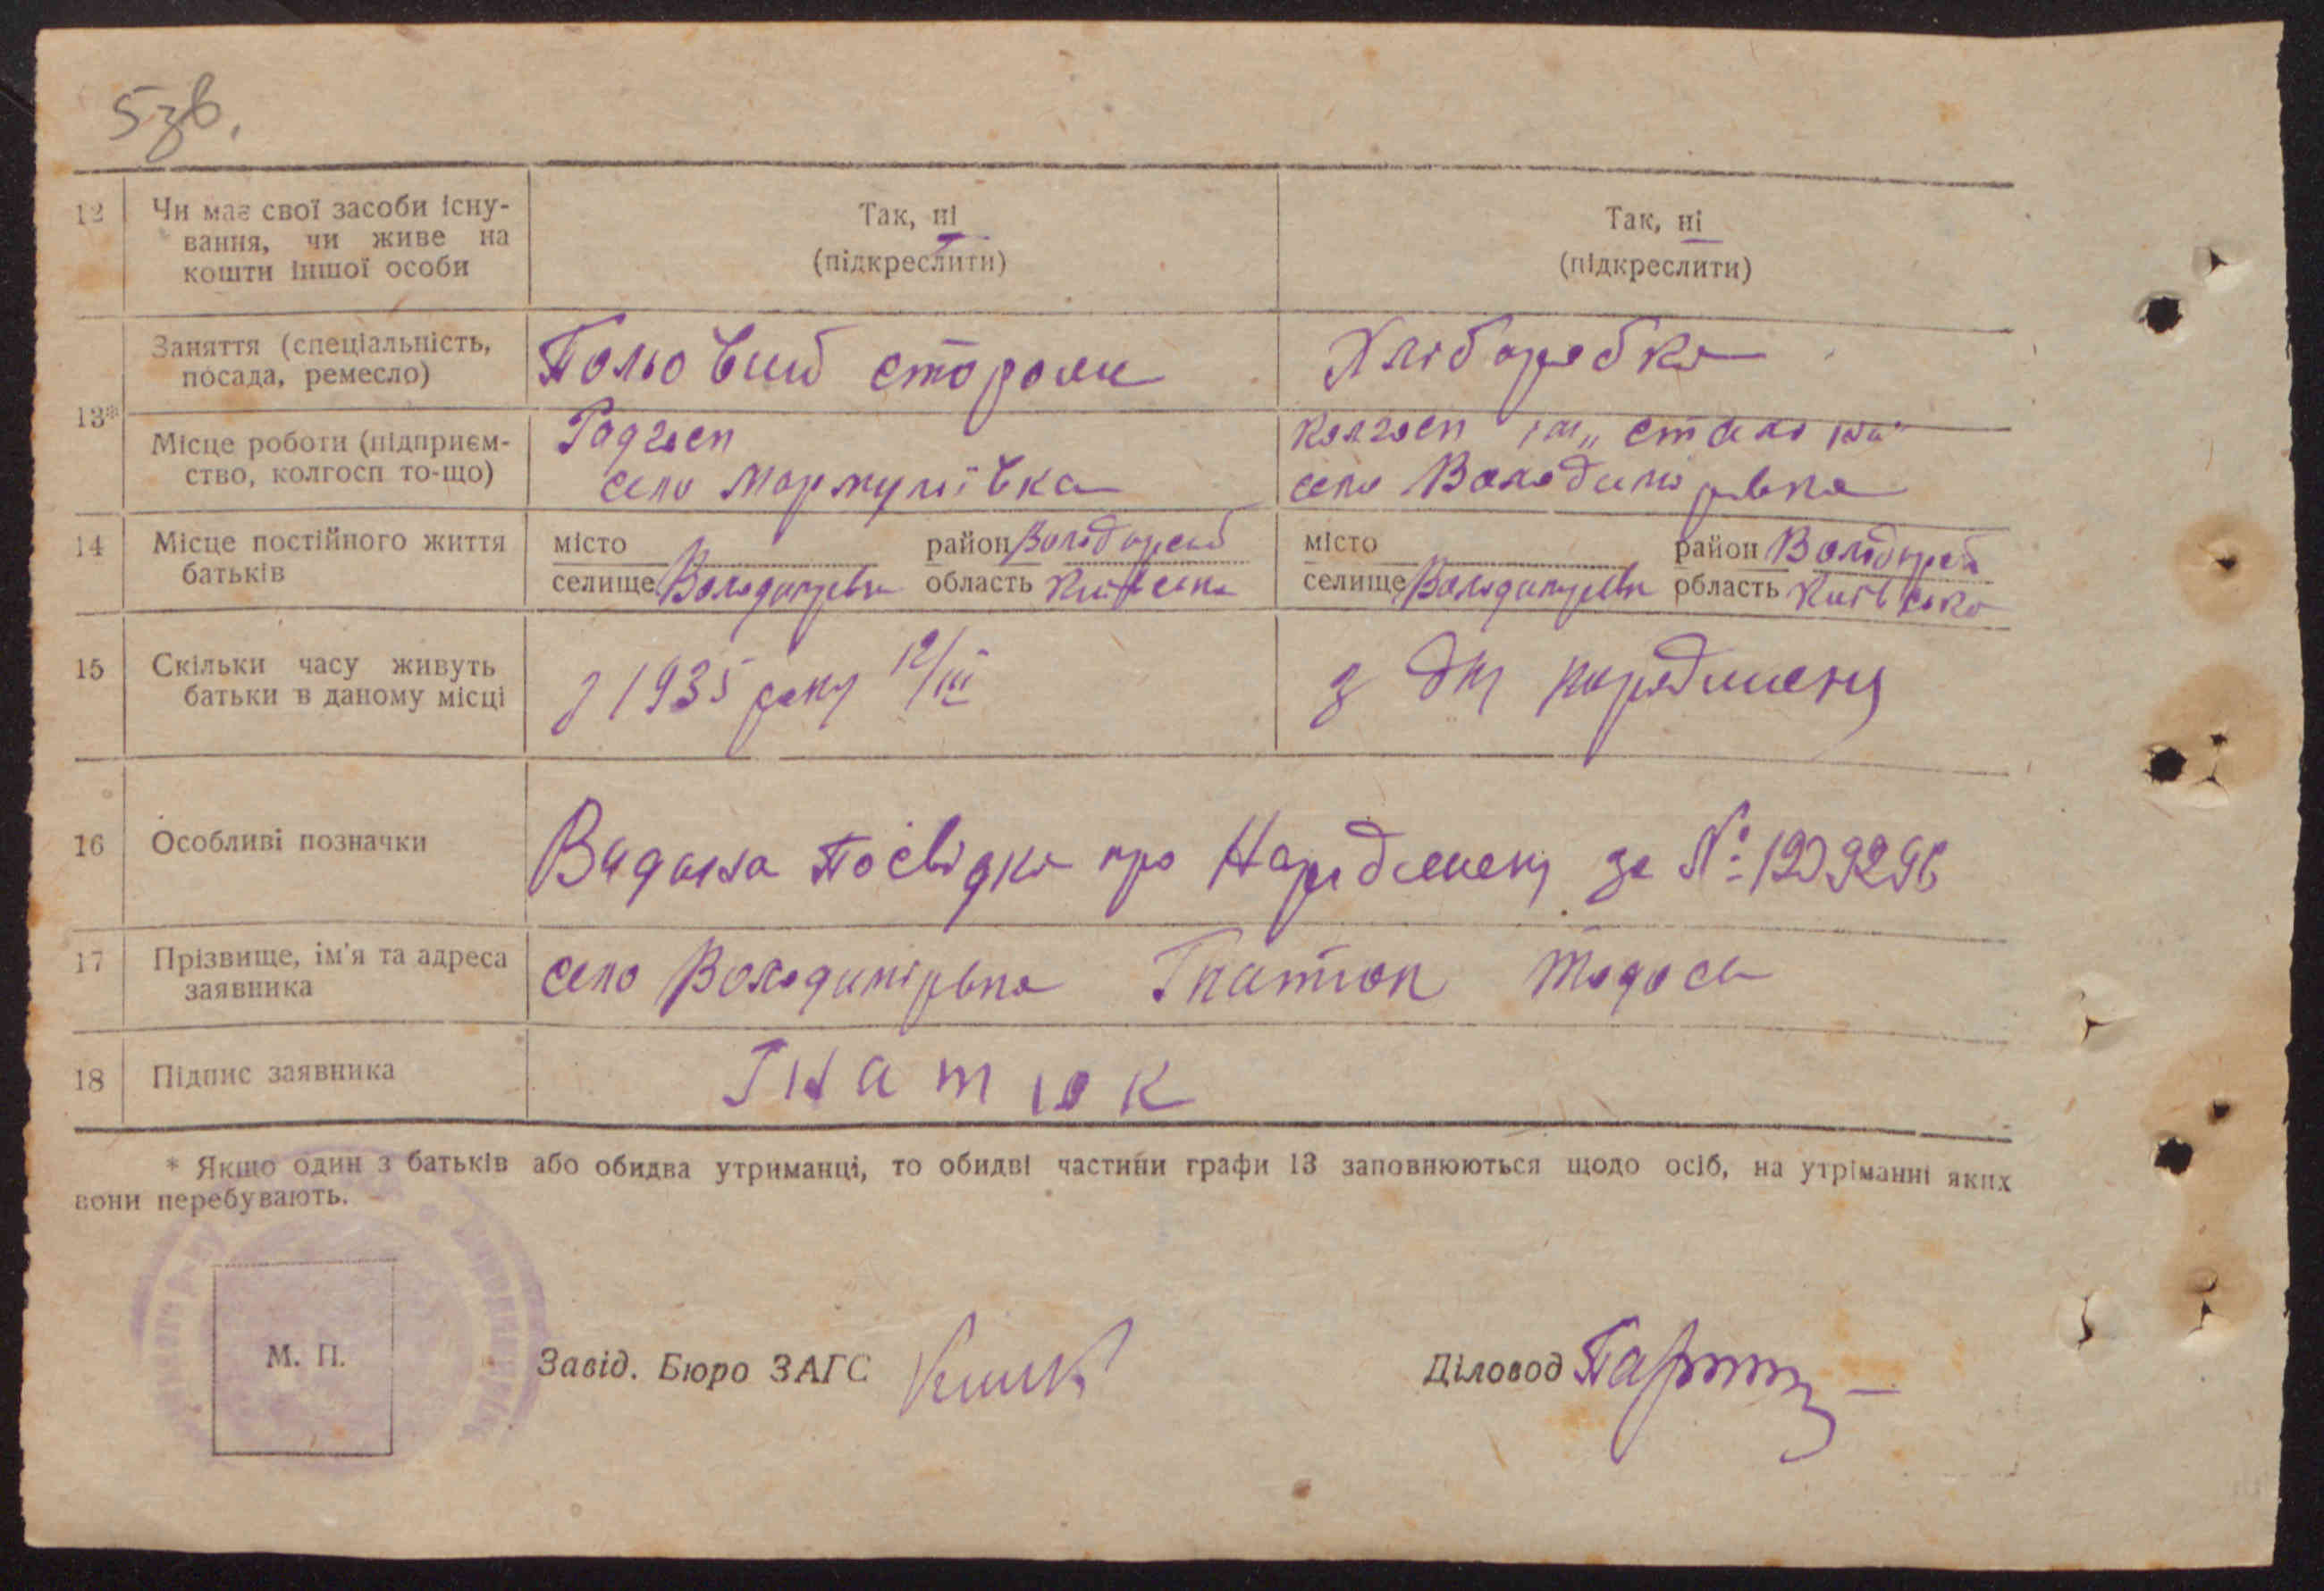 5зв.
12 Чи має свої засоби існу-
вання, чи живе на
кошти іншої особи
Так, ні
(підкреслити)
Так, ні
(підкреслити)
13*
Заняття (спеціальність,
посада, ремесло)
Польовий сторож
Хліборобка
Місце роботи (підприєм-
ство, колгосп то-що)
Радгосп
село Мармуліївка
Колгосп ім „Сталіна"
село Володимірвка
14 Місце постійного життя
батьків
місто район Володарськ
селище Володимірвка область Київська
місто район Володарськ
селище Володимірвка область Київська
15 Скільки часу живуть
батьки в даному місці
з 1935 року 12/III
з дня народження
16 Особливі позначки
Видана Посвідка про Народження за №: 1209296
17 Прізвище, ім'я та адреса
заявника
село Володимірвка Гнатюк Тодось
18 Підпис заявника
Гнатюк
* Якщо один з батьків або обидва утриманці, то обидві частини графи 13 заповнюються щодо осіб, на утріманні яких
вони перебувають.
М. П.
Завід. Бюро ЗАГС
Діловод